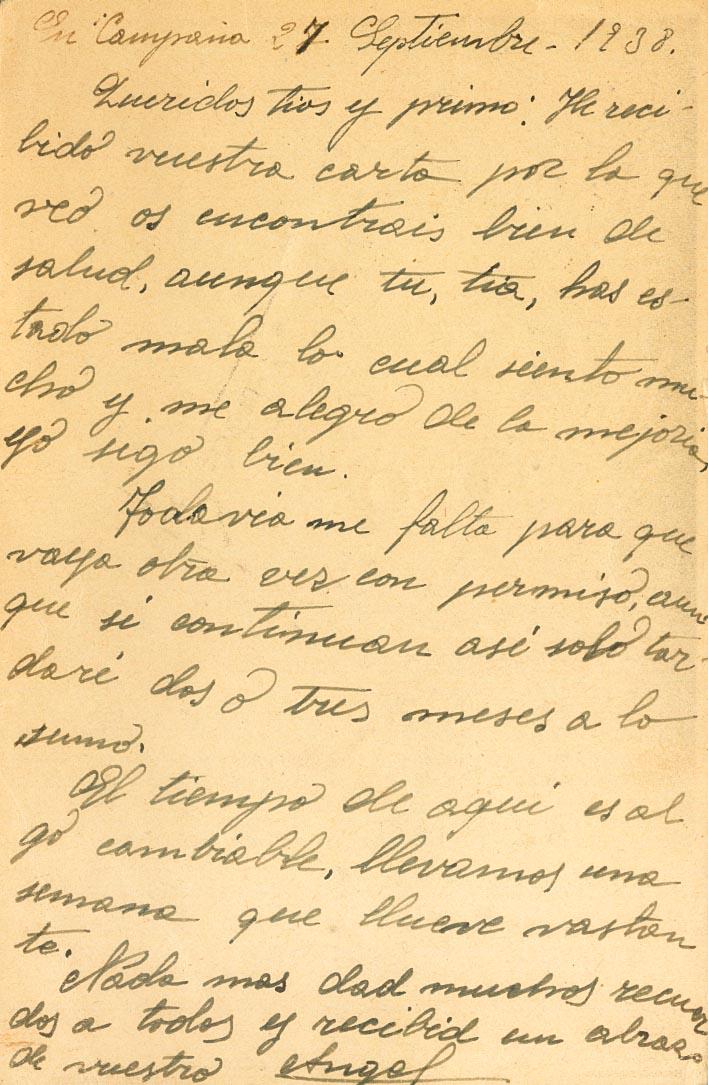 En Campaña 27 Septiembre - 1938.
Queridos tios y primo: He reci-
bido vuestra carta por la que
veo os encontrais bien de
salud, aunque tu, tia, has es-
tado mala lo cual siento mu-
cho y me alegro de la mejoria,
yo sigo bien.
Todavia me falta para que
vaya otra vez con permiso, aun
que si continuan asi solo tar-
daré dos o tres meses a lo
sumo.
El tiempo de aqui es al
go cambiable, llevamos una
semana que llueve vastan
te.
Nada mas dad muchos recuer
dos a todos y recibid un abrazo
de vuestro Angel